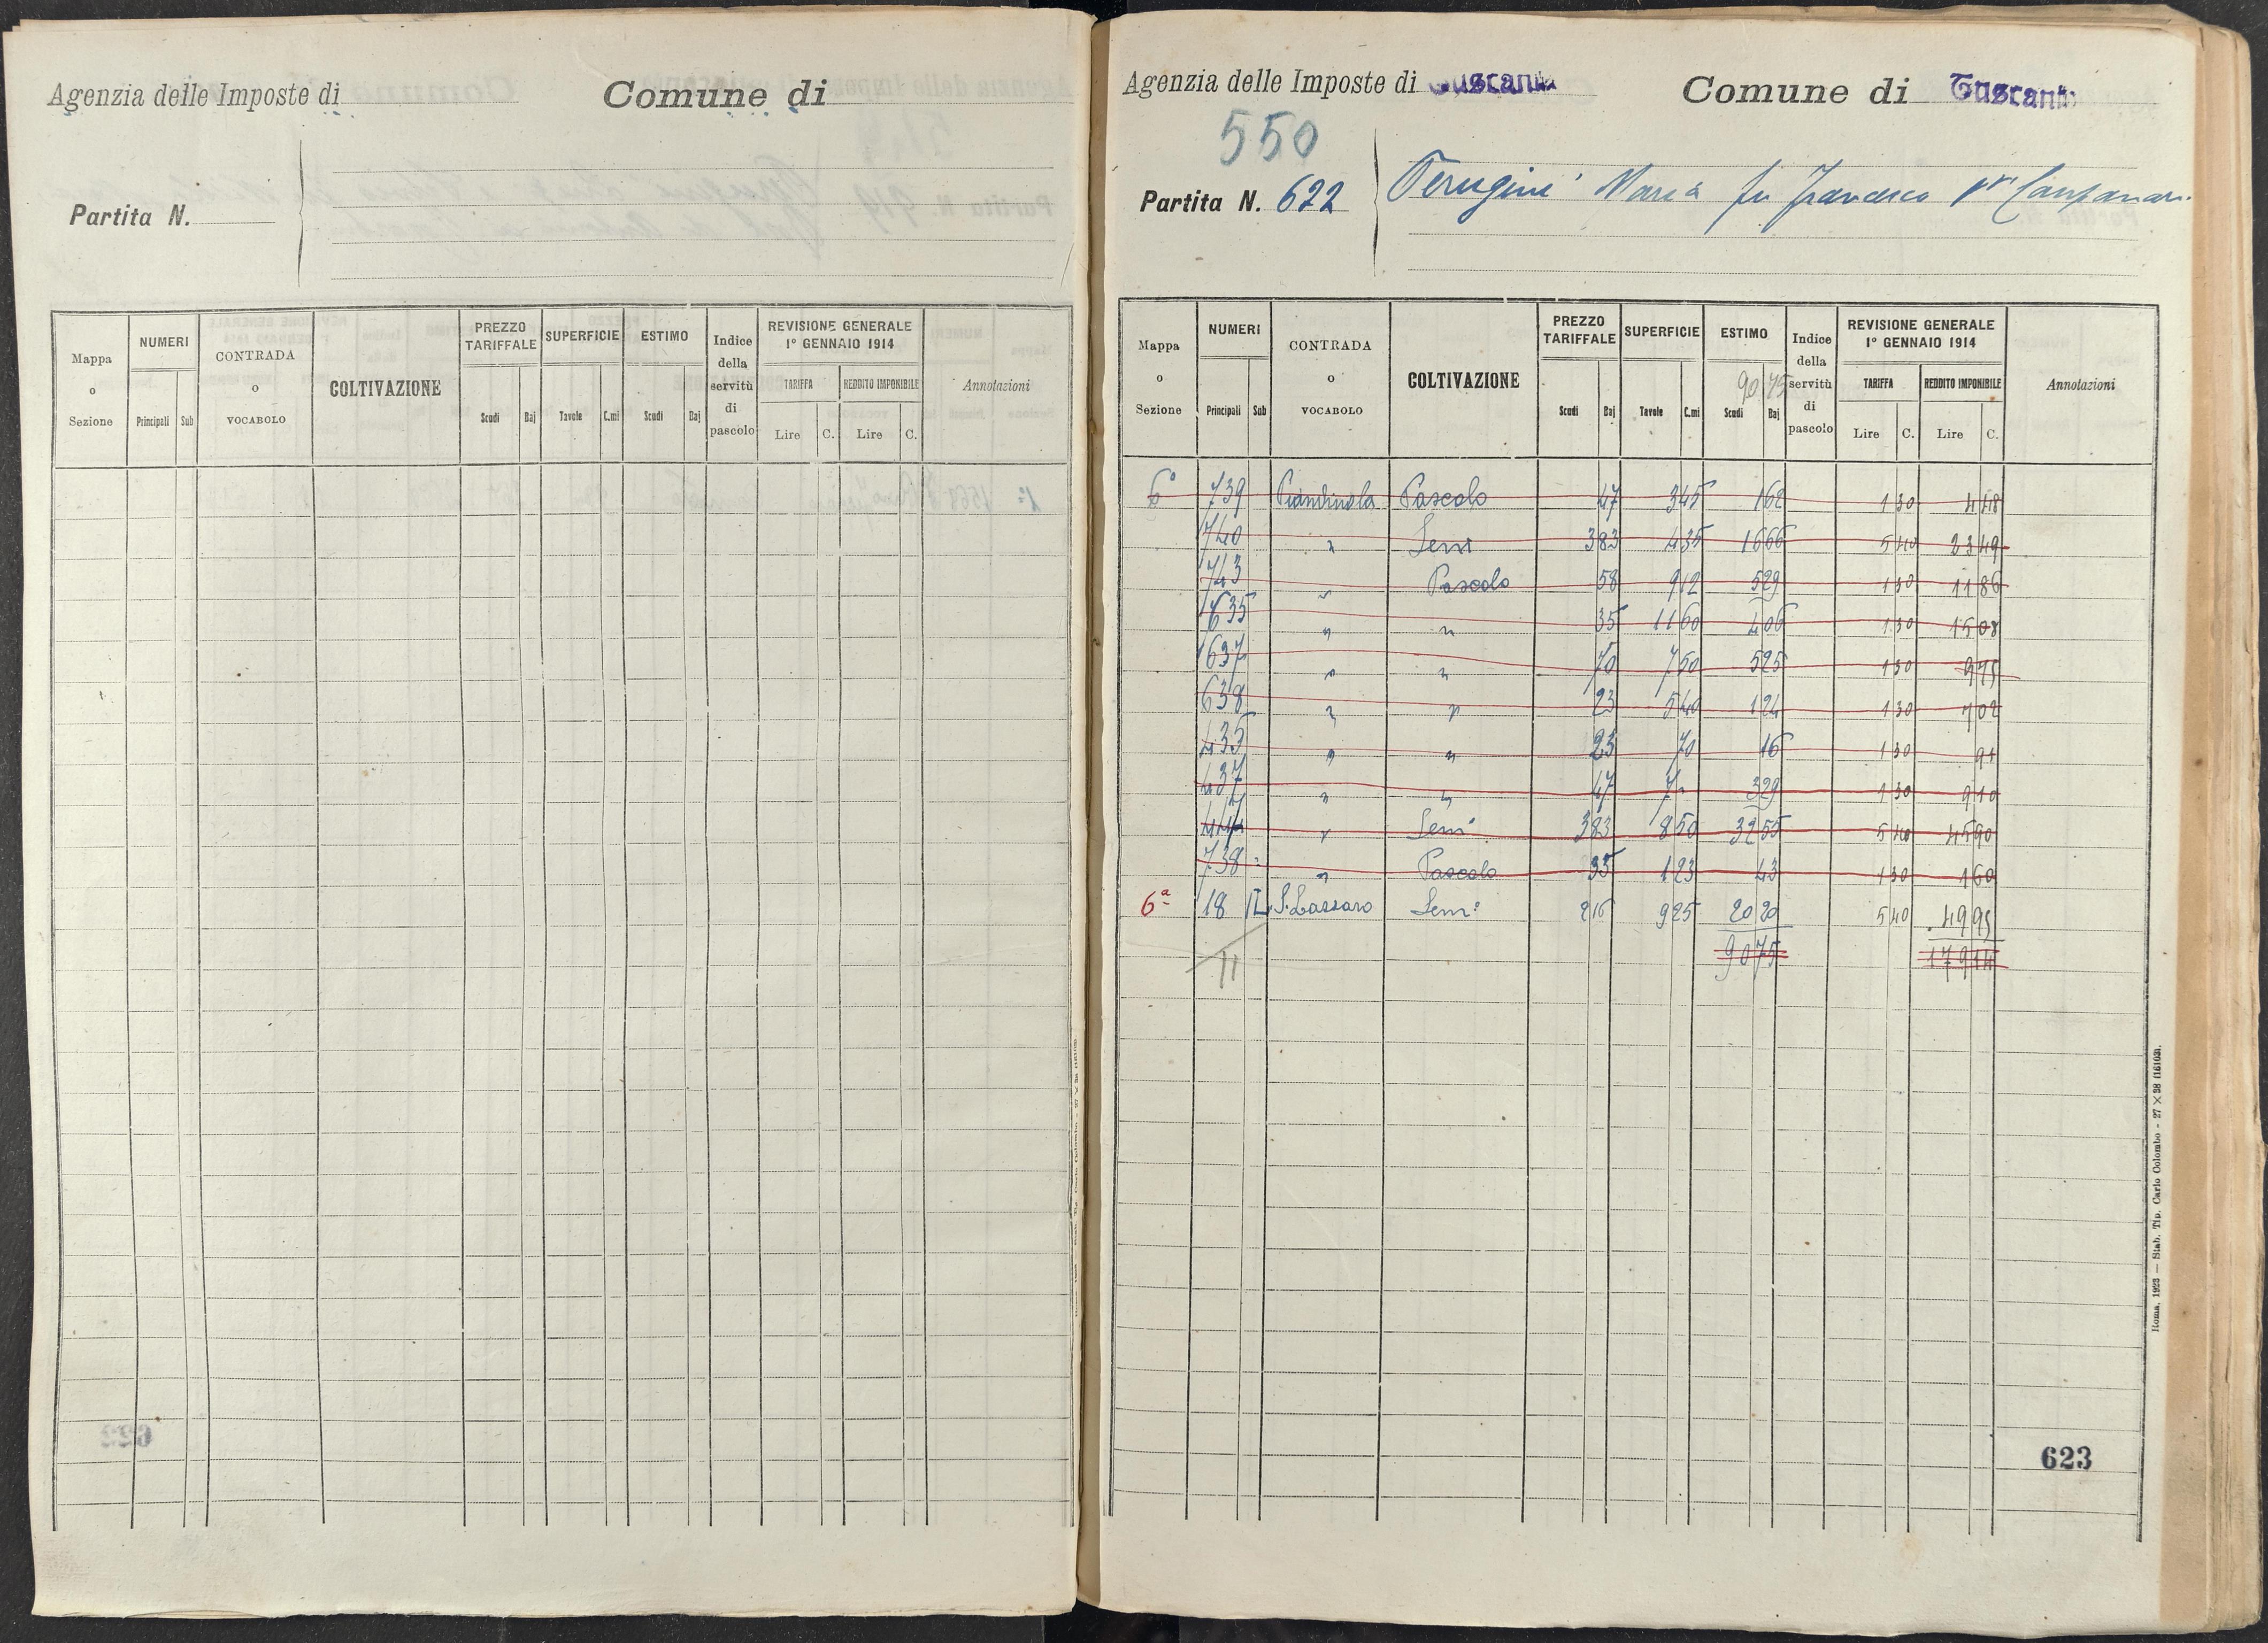 Agenzia delle Imposte di
Comune di
Partita N.
Mappa o Sezione
NUMERI
Principali Sub
CONTRADA o VOCABOLO
COLTIVAZIONE
PREZZO TARIFFALE
Scudi Baj
SUPERFICIE
Tavole C.mi
ESTIMO
Scudi Baj
Indice della servitù di pascolo
REVISIONE GENERALE 1º GENNAIO 1914
TARIFFA REDDITO IMPONIBILE
Lire C. Lire C.
Annotazioni
Agenzia delle Imposte di Tuscania
Comune di Tuscania
550
Partita N. 622
Perugini Maria fu Francesco
Mappa o Sezione
NUMERI
Principali Sub
CONTRADA o VOCABOLO
COLTIVAZIONE
PREZZO TARIFFALE
Scudi Baj
SUPERFICIE
Tavole C.mi
ESTIMO
90 75
Scudi Baj
Indice della servitù di pascolo
REVISIONE GENERALE 1º GENNAIO 1914
TARIFFA REDDITO IMPONIBILE
Lire C. Lire C.
Annotazioni
739 Pascolo 47 3 45 1 62 1 30 4 48
740 " Semi 3 83 4 35 16 66 5 40 23 49
743 " Pascolo 58 9 12 5 29 1 30 11 86
635 " " 35 11 60 4 06 1 30 15 08
637 " " 70 7 50 5 25 1 30 9 75
638 " " 23 5 40 1 24 1 30 7 02
435 " " 23 70 16 1 30 91
437 " " 47 7 - 3 29 1 30 9 10
" Semi 3 83 8 50 32 55 5 40 45 90
738 " Pascolo 35 1 23 43 1 30 1 60
6ª 18 S. Lazzaro Semi 2 16 9 25 20 20 5 40 49 95
90 75 179 14
11
Roma, 1923 — Stab. Tip. Carlo Colombo - 27 × 38 (16163).
623